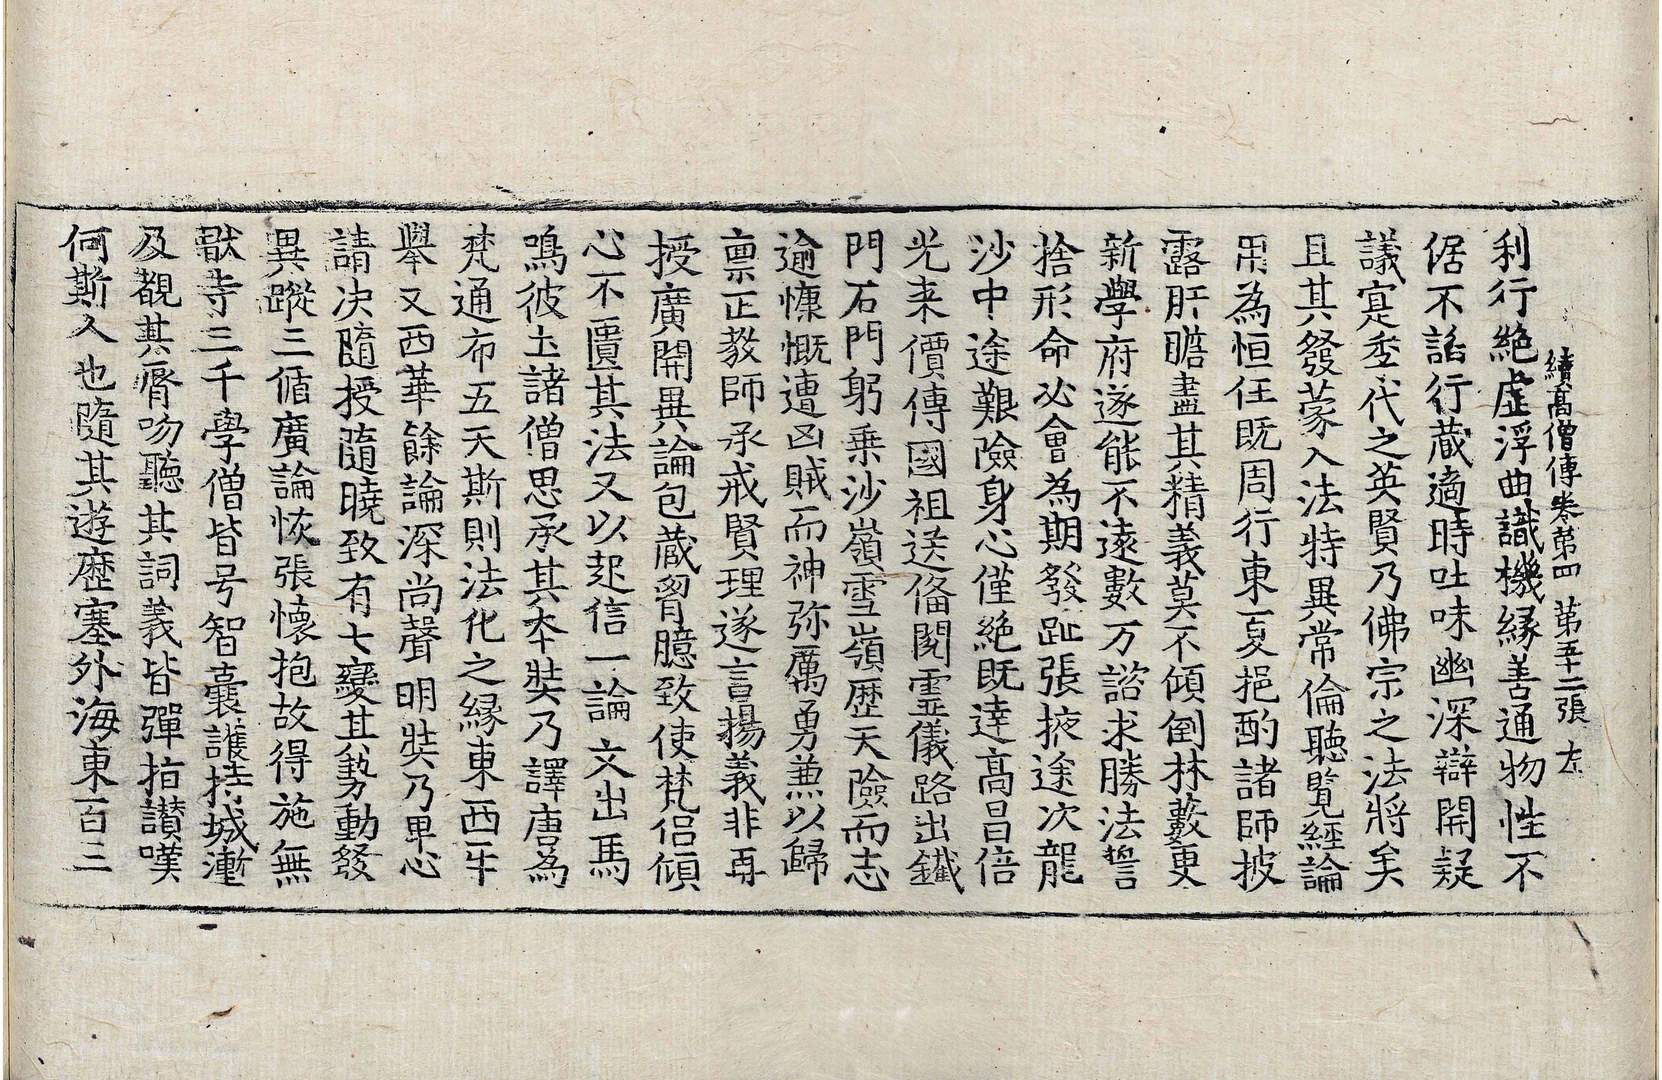 續高僧傳卷第四 第五十二張 左
利行絶虛浮曲識機縁善通物性不
倨不諂行藏適時吐味幽深辯開疑
議寔季代之英賢乃佛宗之法將矣
且其發蒙入法特異常倫聽覽經論
用為恒任既周行東夏挹酌諸師披
露肝膽盡其精義莫不傾倒林藪更
新學府遂能不遠數万諮求勝法誓
捨形命必會為期發趾張掖途次龍
沙中途艱險身心僅絶既達高昌倍
光来價傳國祖送俻閱靈儀路出鐵
門石門躬乗沙嶺雪嶺歴天險而志
逾慷慨遭凶賊而神弥厲勇兼以歸
禀正教師承戒賢理遂言揚義非再
授廣開異論包藏胷臆致使梵侣傾
心不匱其法又以起信一論文出馬
鳴彼土諸僧思承其夲奘乃譯唐為
梵通布五天斯則法化之縁東西互
舉又西華餘論深尚聲明奘乃卑心
請决隨授隨曉致有七變其勢動發
異蹤三循廣論恢張懷抱故得施無
猒寺三千學僧皆号智囊護持城壍
及覩其脣吻聽其詞義皆彈指讃嘆
何斯人也隨其遊歴塞外海東百三